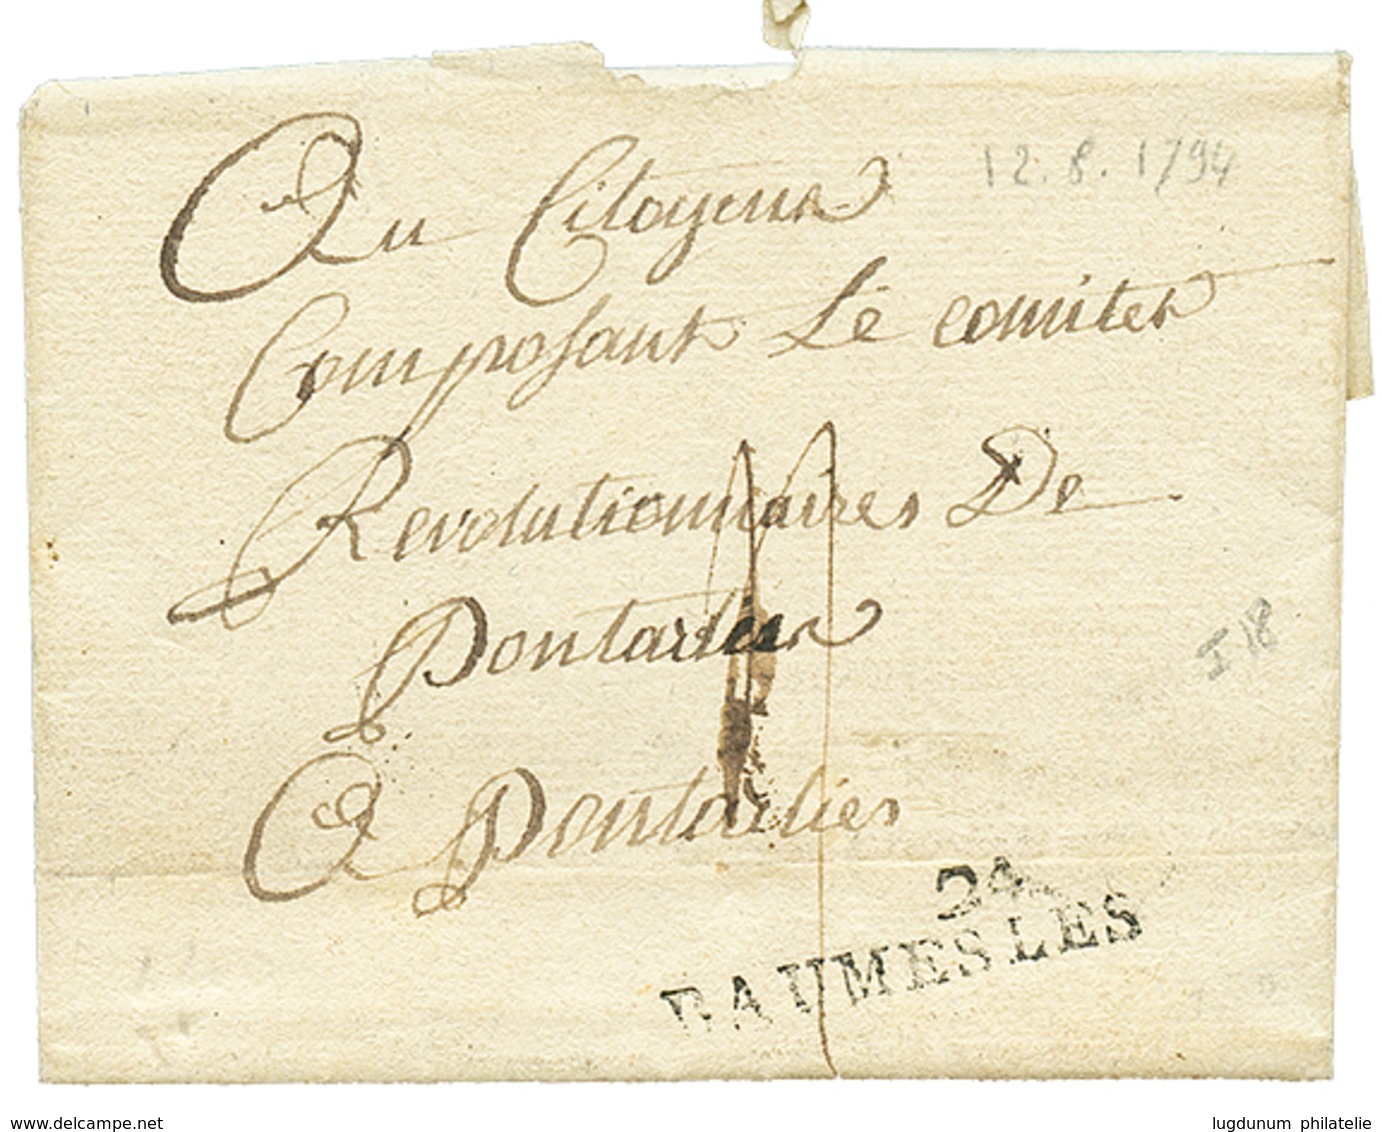 Au Citoyens
12.8.1794
Composant Lé comiter
Revolutionnaires De
Pontarlier
I 18
A Pontarlier
24
BAUMES LES
www.delcampe.net
lugdunum philatelie